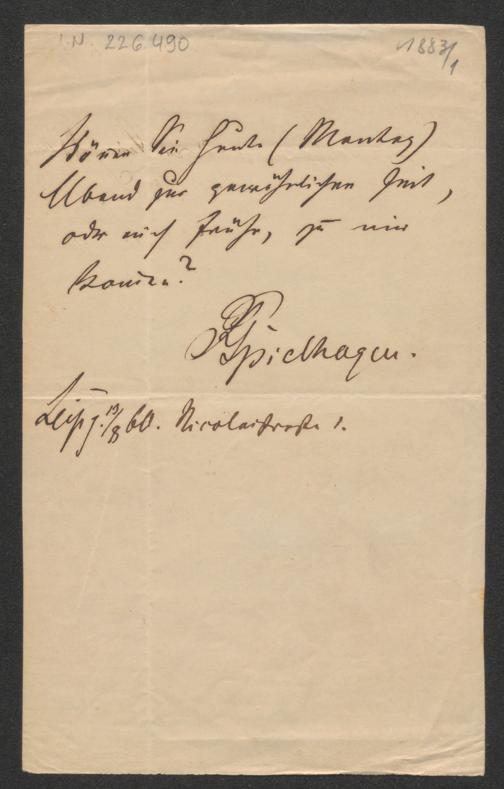 I.N. 226.490
1883/1
Können Sie heute (Montag)
Abend zur gewöhnlichen Zeit,
oder auch früher, zu mir
kommen?
FrSpielhagen.
Leipzg. 13/8 60. Nicolaistraße 1.